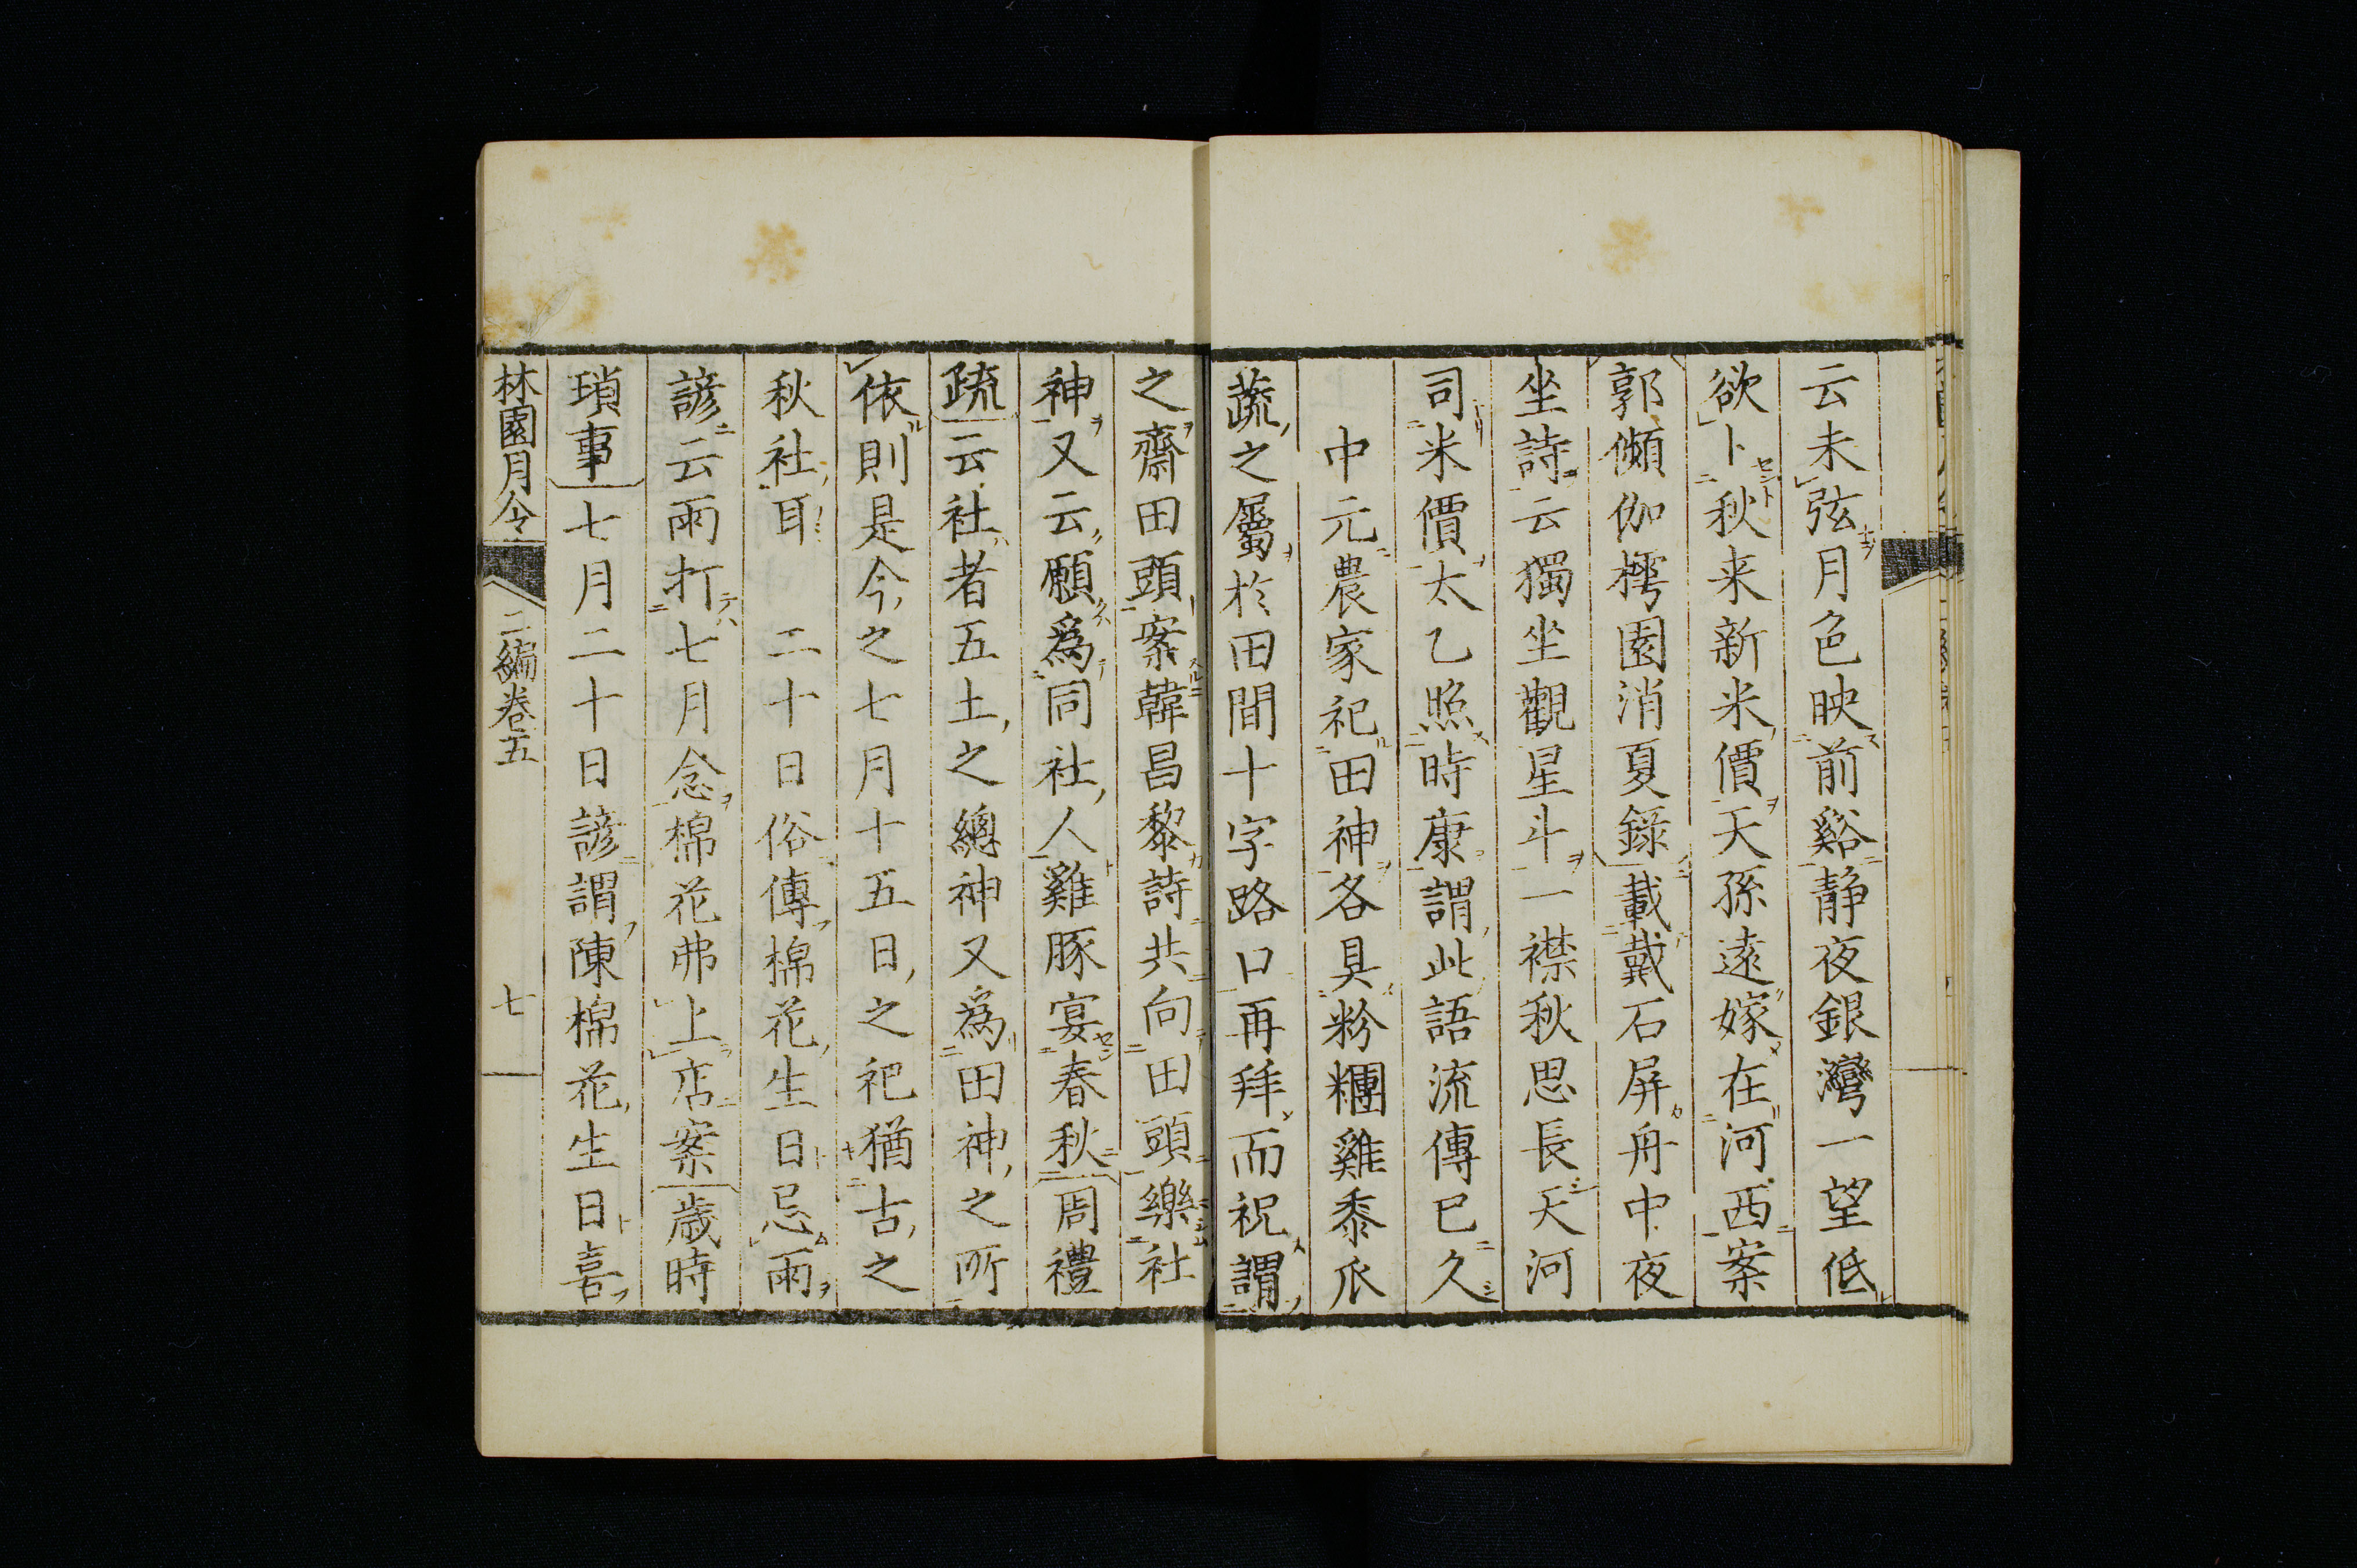 云未弦月色映前谿靜夜銀灣一望低
欲卜秋来新米價天孫遠嫁在河西案
郭頻伽樗園消夏錄載戴石屏舟中夜
坐詩云獨坐觀星斗一襟秋思長天河
司米價太乙照時康謂此語流傳已久
中元農家祀田神各具粉糰雞黍瓜
蔬之屬於田間十字路口再拜而祝謂
之齋田頭案韓昌黎詩共向田頭樂社
神又云願爲同社人雞豚宴春秋周禮
疏云社者五土之總神又爲田神之所
依則是今之七月十五日之祀猶古之
秋社耳　二十日俗傳棉花生日忌雨
諺云雨打七月念棉花弗上店案歲時
瑣事七月二十日諺謂陳棉花生日喜
林園月令　二編卷五　七